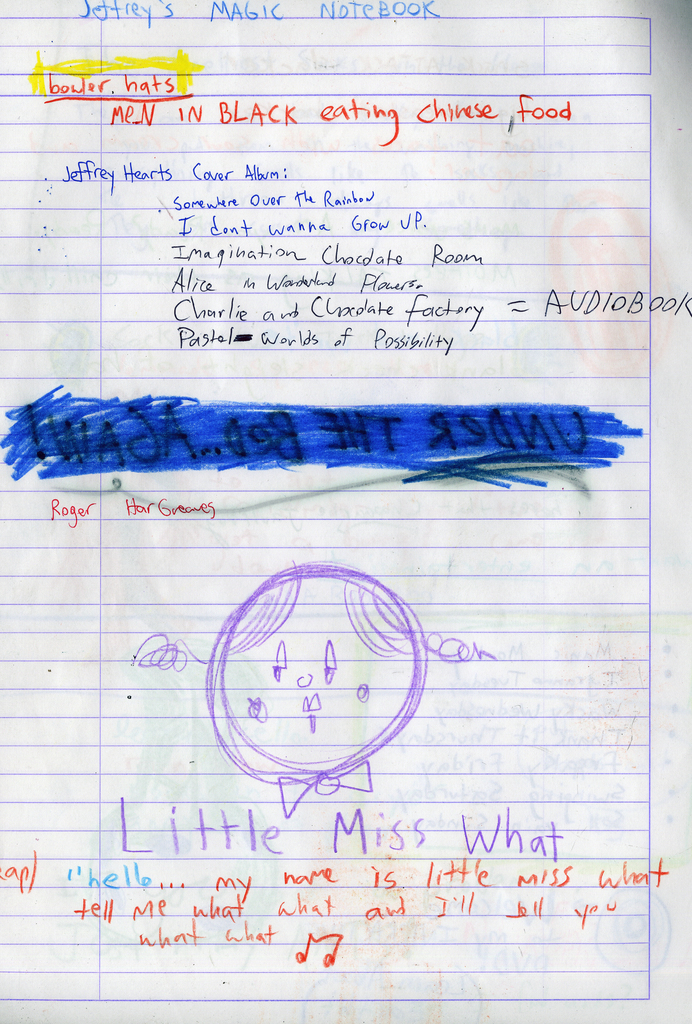 Jeffrey's MAGIC NOTEBOOK
bowler hats
MEN IN BLACK eating Chinese food
Jeffrey Hearts Cover Album:
Somewhere Over The Rainbow
I dont wanna Grow UP.
Imagination Chocolate Room
Alice in Wonderland Flowers.
Charlie and Chocolate factory = AUDIOBOOK
Pastel Worlds of Possibility
UNDER THE BED...AGAIN!
Roger HarGreaves
Little Miss What
"hello... my name is little miss what
tell me what what and I'll tell you
what what